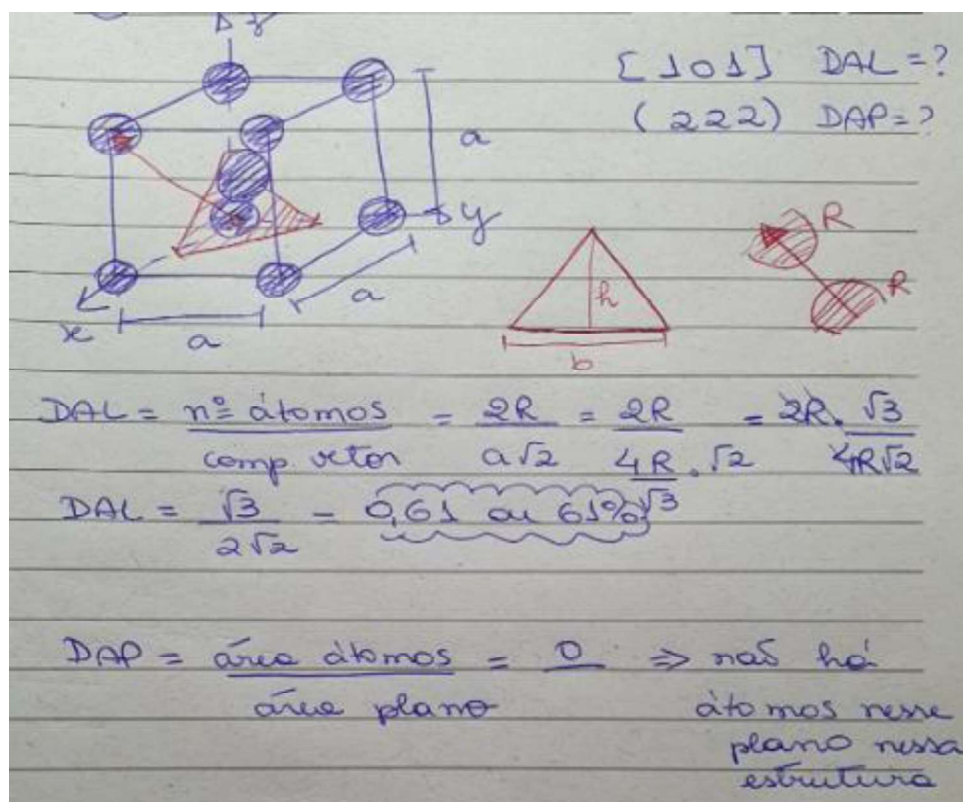 z
[101] DAL=?
(222) DAP=?
a
y
a
x
a
h
b
R
R
DAL = nº átomos / comp. vetor = 2R / a√2 = 2R / 4R/√3 . √2 = 2R . √3 / 4R√2
DAL = √3 / 2√2 = 0,61 ou 61%
DAP = área átomos / área plano = 0 ⇒ não há
átomos nesse
plano nessa
estrutura